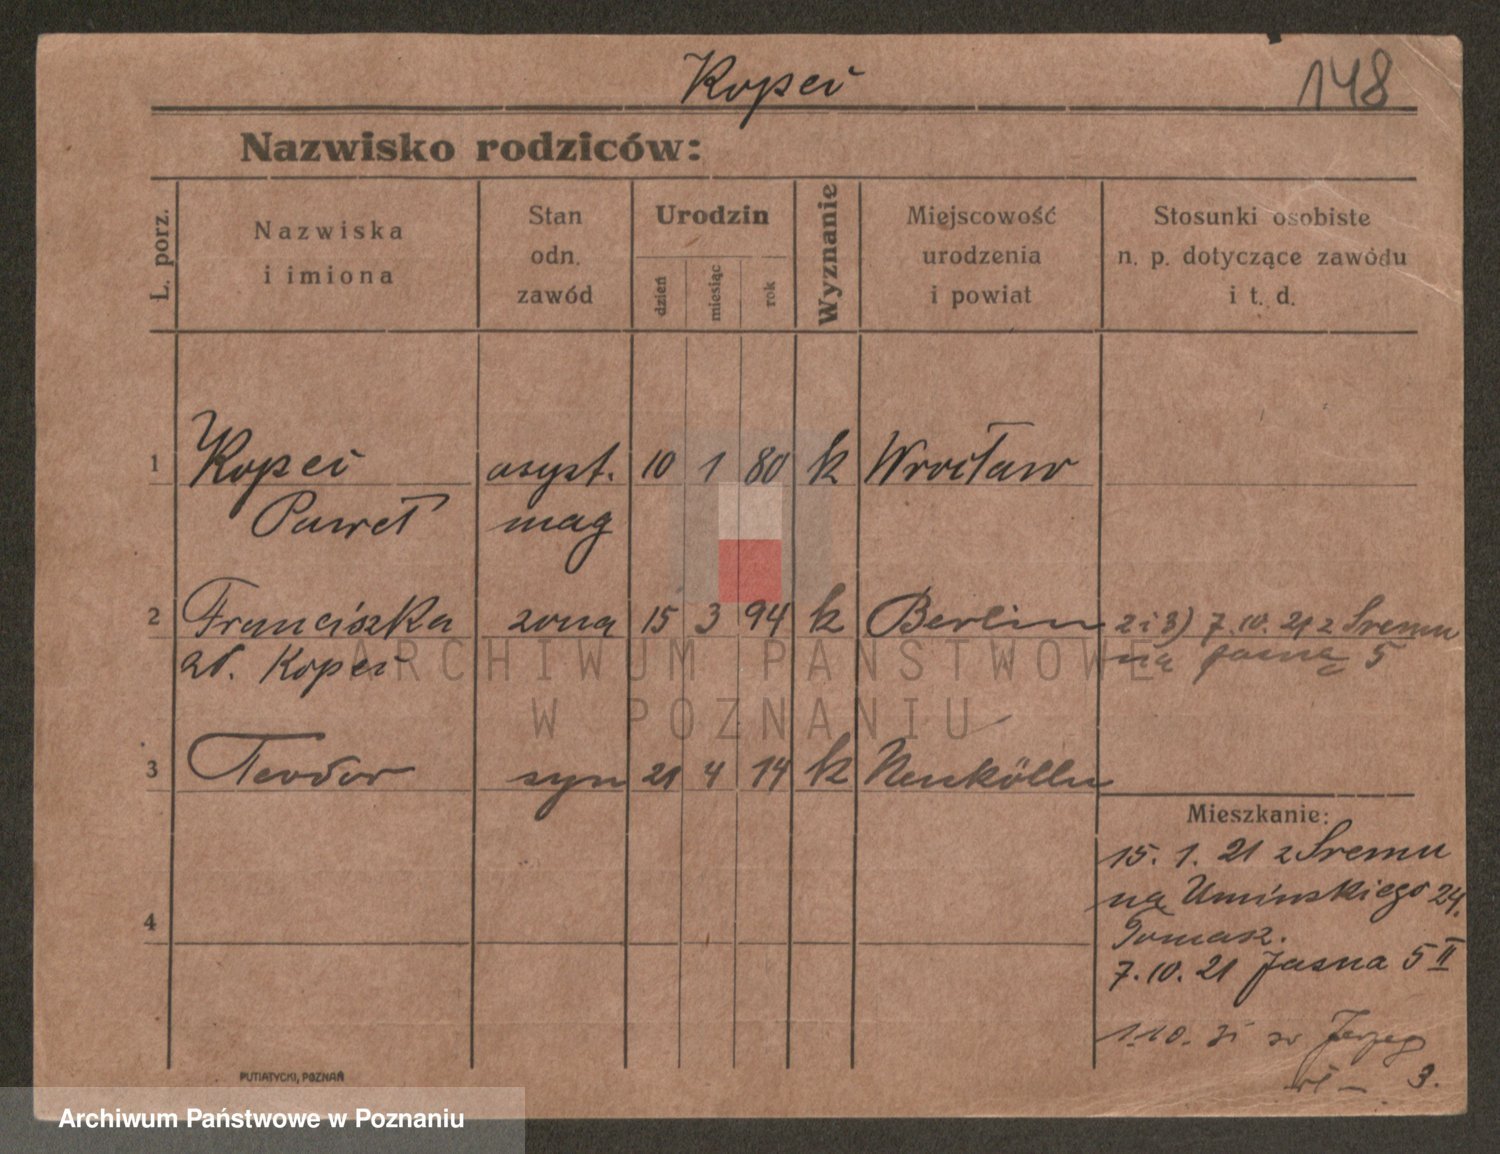 Kopeć
148
Nazwisko rodziców:
L. porz.
Nazwiska
i imiona
Stan
odn.
zawód
Urodzin
dzień
miesiąc
rok
Wyznanie
Miejscowość
urodzenia
i powiat
Stosunki osobiste
n. p. dotyczące zawódu
i t. d.
1 Kopeć asyst. 10 1 80 k Wrocław
Paweł mag
2 Franciszka żona 15 3 94 k Berlin 2 i 3) 7.10.21 z Śremu
na Jasną 5
Kopeć
3 Teodor syn 21 4 14 k Neukölln
Mieszkanie:
15. 1. 21 z Śremu
na Umińskiego 24.
Tomasz.
4
7.10.21 Jasna 5 II
1.10. św Jerzego
3.
PUTIATYCKI, POZNAŃ
ARCHIWUM PAŃSTWOWE
W POZNANIU
Archiwum Państwowe w Poznaniu